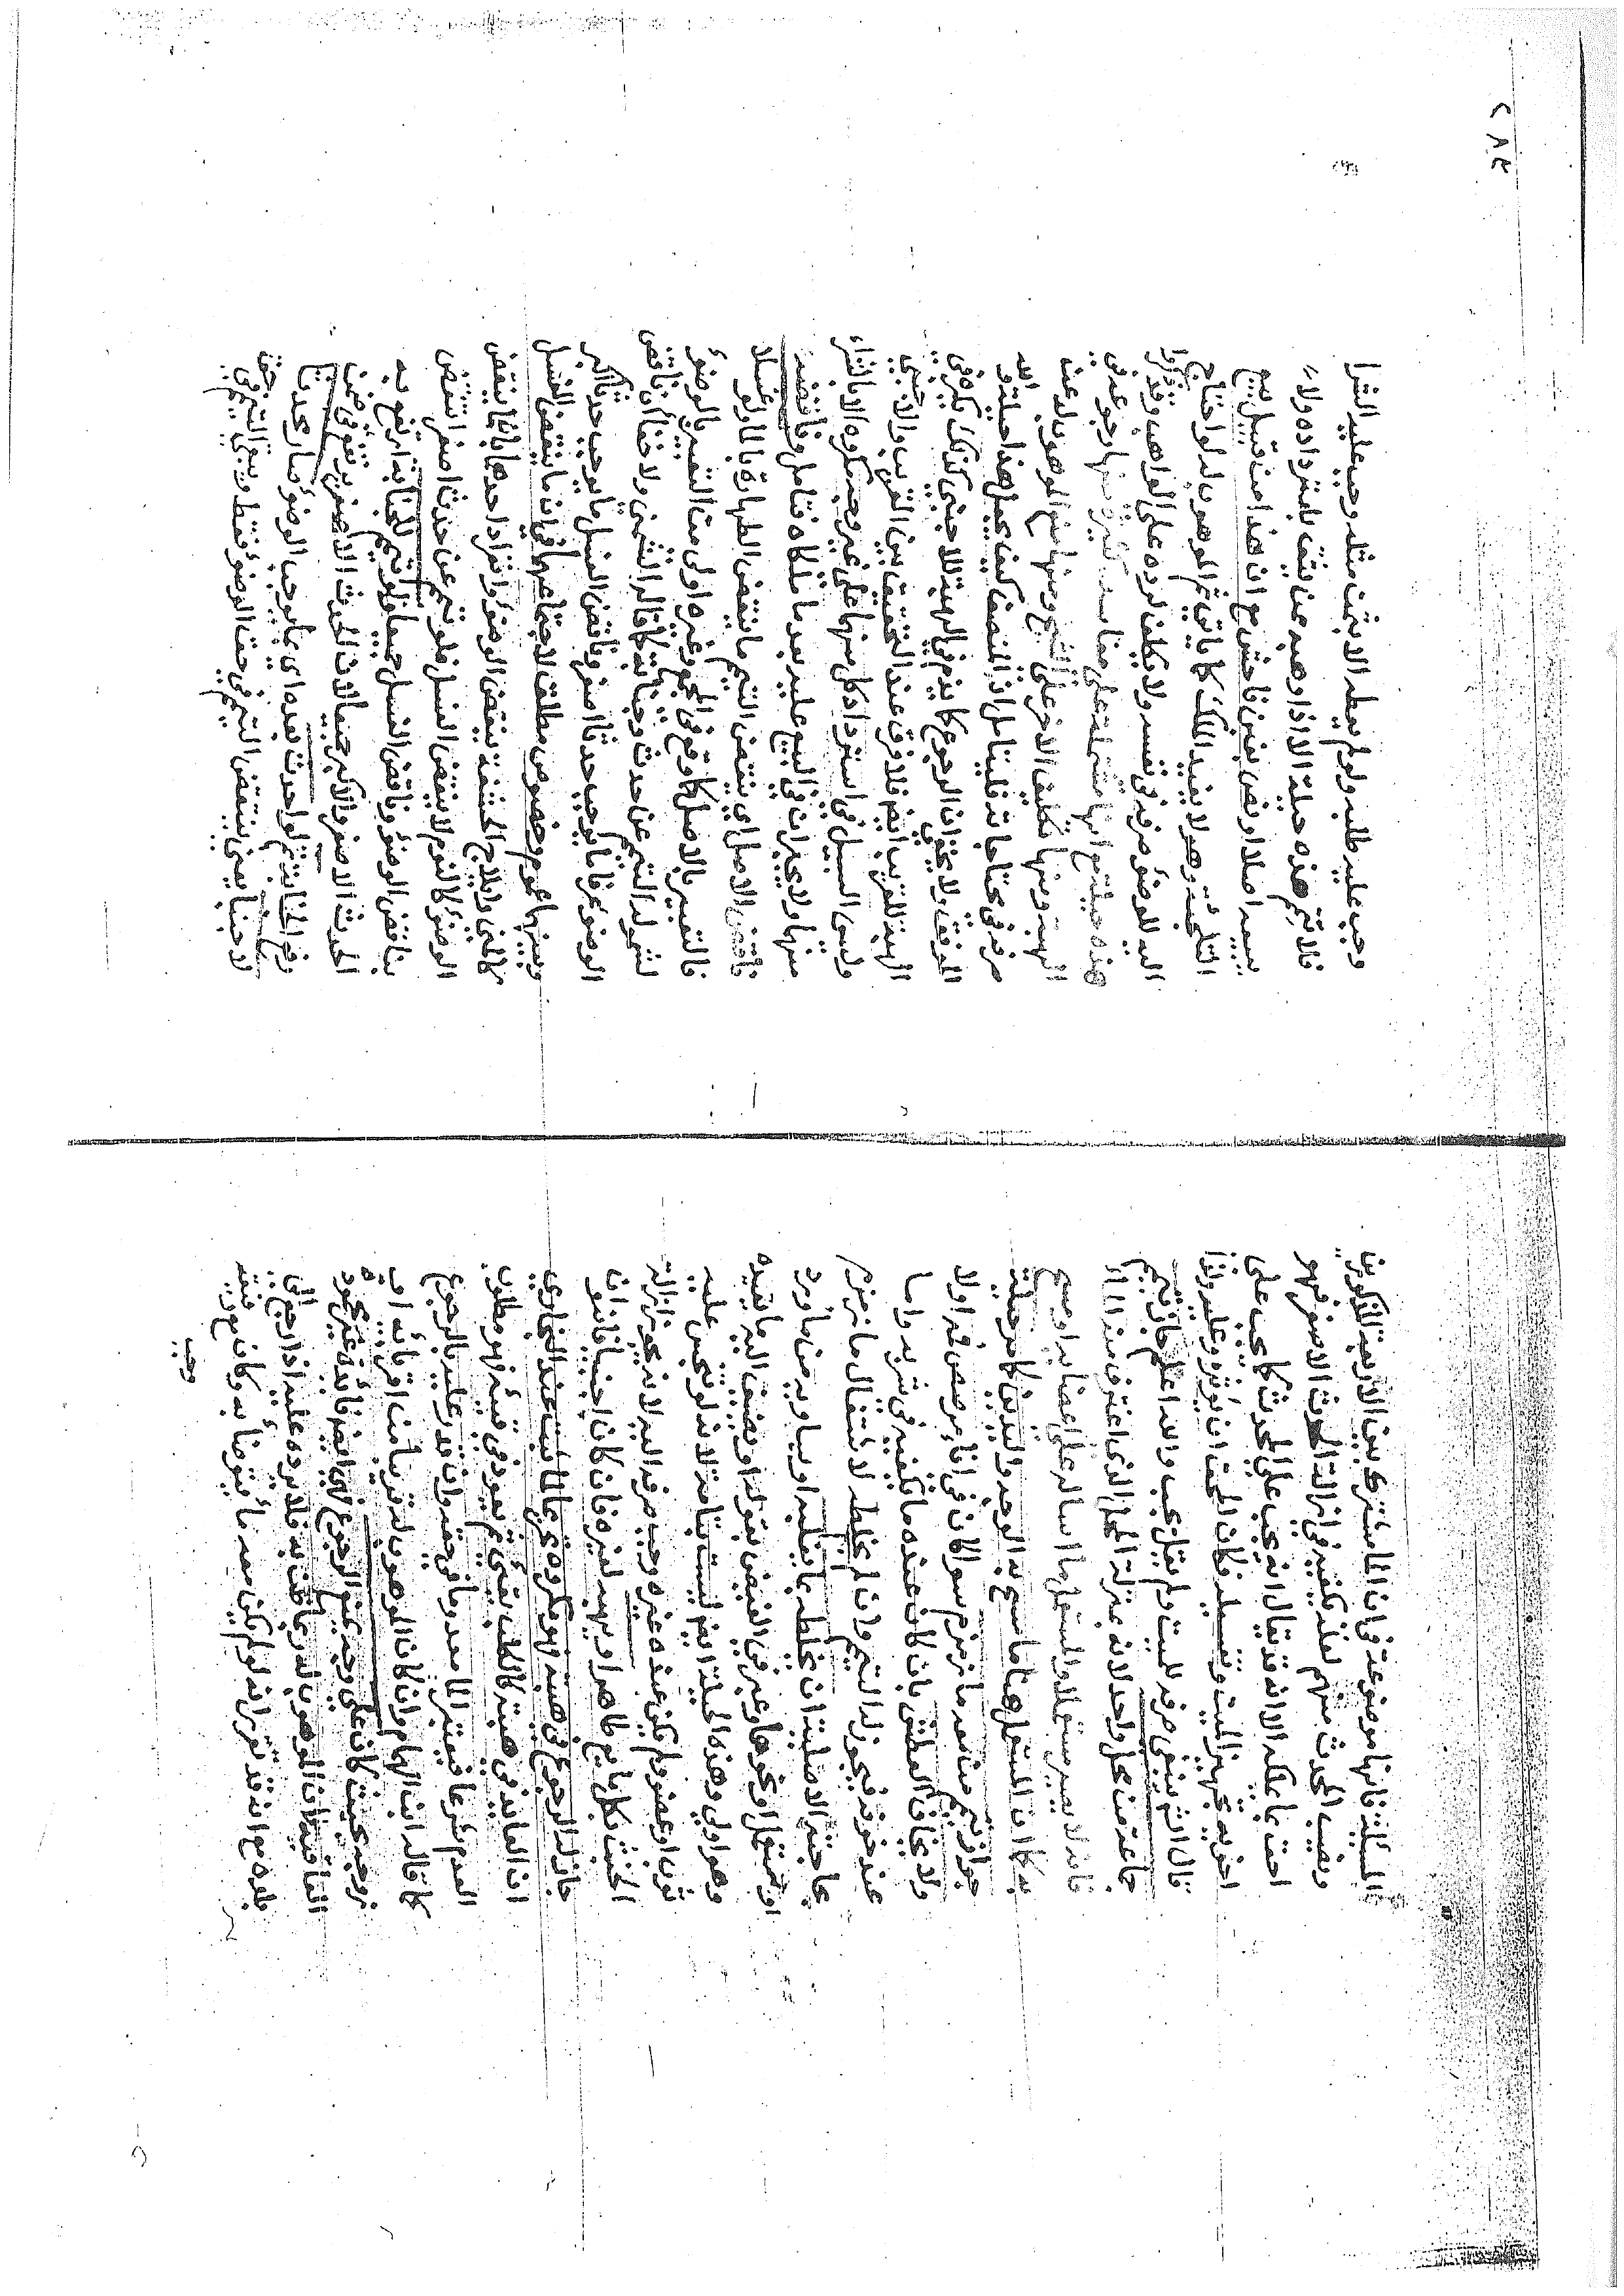 المسئلة فانها موضوعة في ان الماء مشترك بين الاربعة المذكورين
ونصيب المحدث منهم لعله يكفيه في ازالة الحدث الاصغر فهو
احق بما يملكه الا انه قد يقال انه يجب على المحدث كما يجب على
اخويه تجهيز الميت وتغسيله فكان الحق ان يؤثره عليه ولذا
قال ثم ينبغي صرفه للميت ولم يقل يجب والله اعلم جاز تيمم
جماعة من محل واحد لانه بمنزلة المحل الذي اغترف منه الماء
فانه لا يصير مستعملا والمستعمل ما اساله على اعضائه او مسح
به كما ان المستعمل هنا ما مسح به الوجه واليدين كما مر حيلة
جواز تيمم من معه ماء زمزم سوا كان في اناء مرصص فمه اولا
ولا يخاف العطش بان كان عنده ما يكفيه في شربه واما
عند خوفه فيجوز له التيمم وان لم يخلطه لاشتغال ماء زمزم
بحاجته الاصلية ان يخلطه بما يغلبه او يساويه من ماء ورد
او مستعمل او نحوها وعبر في الفيض بقوله او يضيف اليه ما يقيده
وهو اولى وهذه الحيلة ايضا ليست بتامة لانه لو تنجس عليه
ثوب او عضو ولم يكن عنده غيره وجب صرفه اليه لانه يجوز ازالة
الخبث بكل مايع طاهر او يهبه لغيره فان كان اجنبيا فانه وان
جاز له الرجوع في هبته فهو مكروه تحريما لما ثبت عند البخاري
ان العائد في هبته كالكلب يقئ ثم يعود في قيئه فهو مطلوب
العدم شرعا فيعتبر الماء معدوما في حقه وان قدر عليه بالرجوع
كما قاله ابن الهمام وان كان الموهوب له قريبا من اقربائه او
زوجه بحيث كان على وجه يمنع الرجوع ايضا فائدة غير
العاقبة ان الموهوب له ربما ظن به فلا يرده عليه اذا رجع الى
بلده مع انه قد تقرر انه لو لم يكن معه ماء يتوضأ به وكان مع رفيقه
وجب
وجب عليه طلبه ولو لم يعطه الا بثمن مثله وجب عليه الشرا
فلا تتم هذه حيلة الا اذا وهبه ممن يثق باسترداده ولاء
يبيعه اصلا او رضى بغبن فاحش مع ان هذا من قبيل بيع
التلجئة وهو لا يفيد الملك كما ياتي ثم الموهوب له لو احتاج
اليه للوضوء صرفه في نفسه ولا يكلف لرده على الواهب وقد ذكروا
هذه حيلة مع انها مشتملة على مفاسد كثيرة منها رجوعه في
الهبة ومنها تكليف الاخر على الشح ومنها منع الموهوب له عنه
صرفه في محتاجاته فليتامل ان المنصف كيف يعمل بهذا حيلة و الله
الموفق ولا يخفى ان الرجوع كما يذم في الهبة للاجنبي كذلك يكره في
الهبة للقريب ايضا فلا فرق عند التحقيق بين القريب والاجنبي
وليس السبيل في استرداد كل منها على غير وجه مكروه الا بالشراء
منها ولا يجبران في البيع عليه بعد ما ملكاه فتامل وناقضه
ناقض الاصل اي ينقض التيمم ما ينقض الطهارة بالماء ولو غسلا
فالتعبير بالاصل كما وقع في المجمع وغيره اولى من التعبير بالوضوء
لشموله التيمم عن حدث وجنابة كما قاله الشمني ولا خفاء ان ناقض
الوضوء عرفا ما يوجب حدثا اصغر وناقض الغسل ما يوجب حدثا اكبر
وبينهما عموم وخصوص مطلق لاجتماعهما في ان ما ينقض الغسل
كالمني وايلاج الحشفة ينقض الوضوء وانفراد احدهما بان ما ينقض
الوضوء كالنوم لا ينقض الغسل فلو تيمم عن حدث اصغر انتقض
بناقض الوضوء وناقض الغسل جميعا ولو تيمم للجنابة ارتفع به
الحدث الاصغر والاكبر جميعا لان الحدث الاصغر يرتفع في ضمن
رفع الجنابة ثم لو احدث بعده اي بما يوجب الوضوء صار محدثا
لا جنبا يعني ينتقض التيمم في حق الوضوء فقط ويبقى التيمم في حق